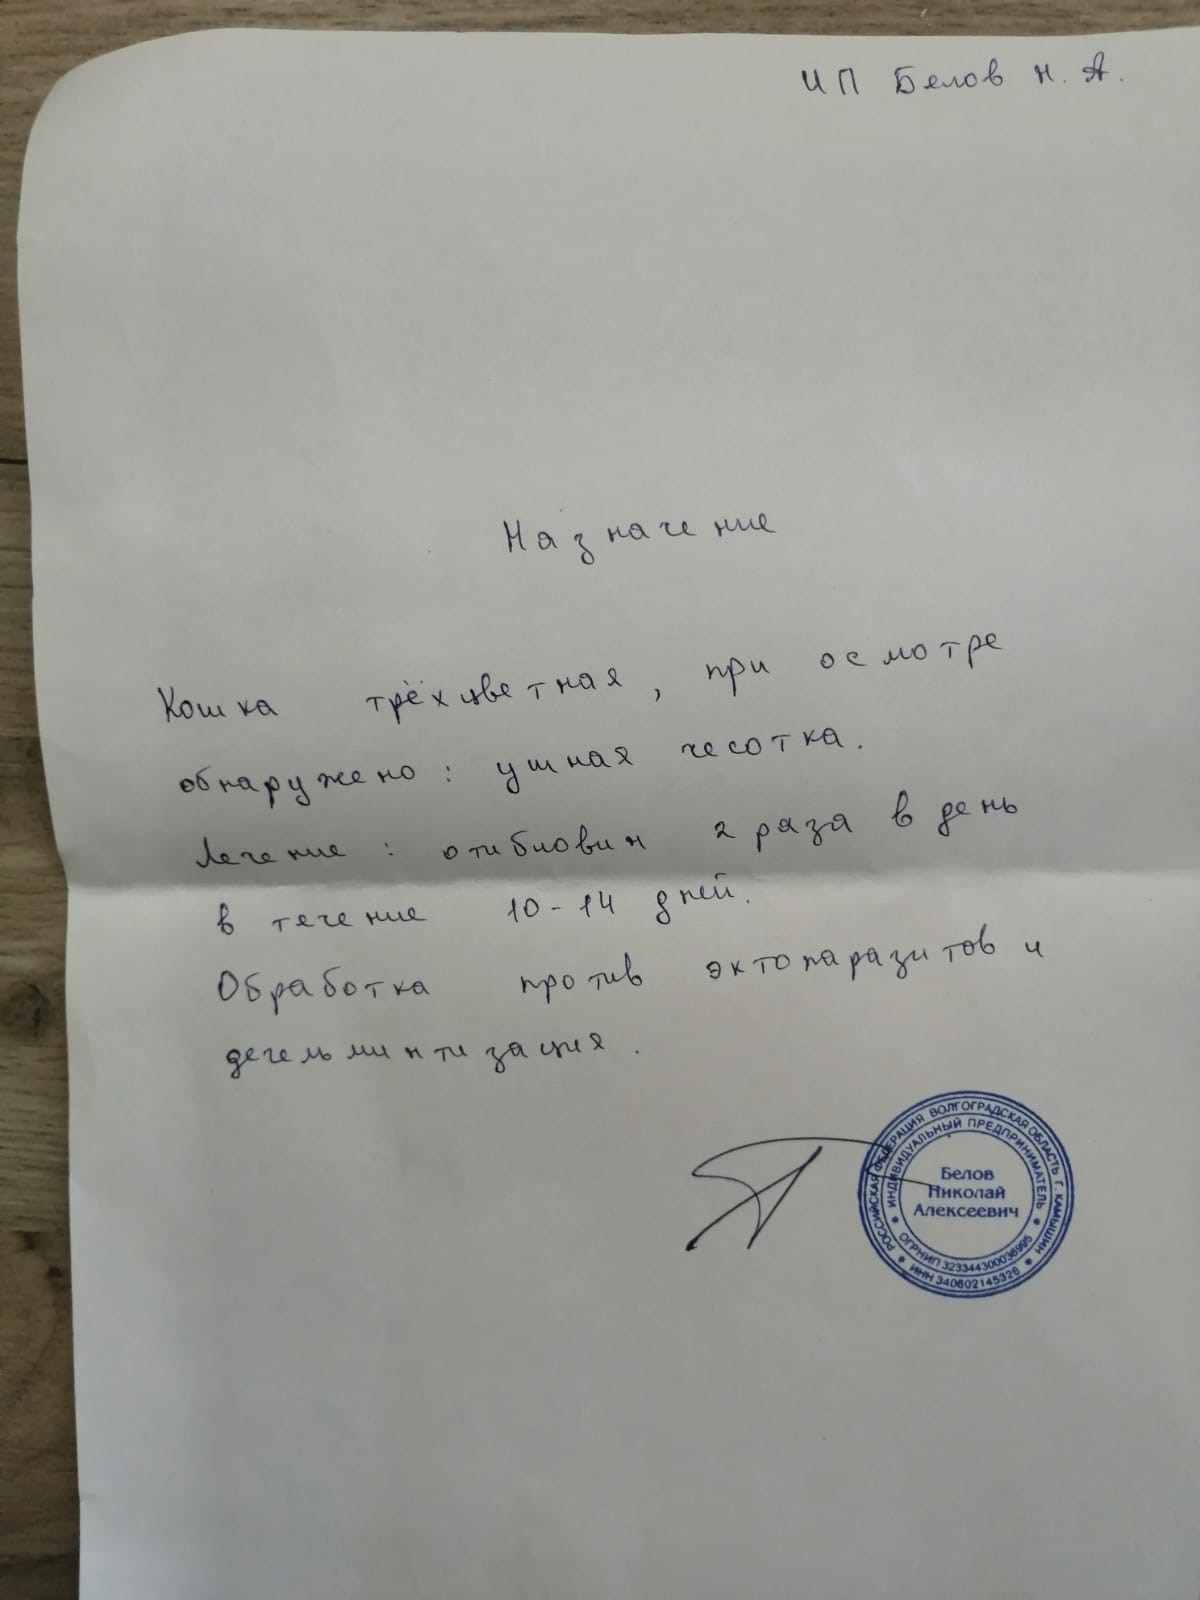 ИП Белов Н. А.
Назначение
Кошка трёхцветная, при осмотре
обнаружено: ушная чесотка.
Лечение: отибиовин 2 раза в день
в течение 10-14 дней.
Обработка против эктопаразитов и
дегельминтизация.
РОССИЙСКАЯ ФЕДЕРАЦИЯ ВОЛГОГРАДСКАЯ ОБЛАСТЬ Г. КАМЫШИН
ИНДИВИДУАЛЬНЫЙ ПРЕДПРИНИМАТЕЛЬ
Белов
Николай
Алексеевич
ОГРНИП 323344300036995
ИНН 340602145326